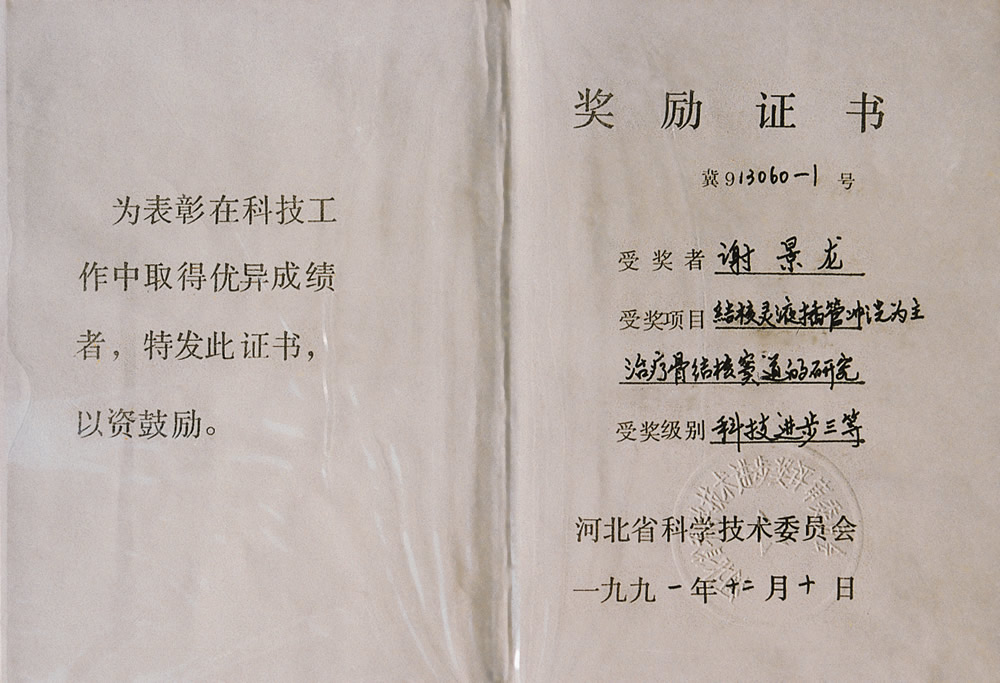 为表彰在科技工
作中取得优异成绩
者，特发此证书，
以资鼓励。
奖励证书
冀913060-1号
受奖者 谢景龙
受奖项目 结核灵液插管冲洗为主
治疗骨结核窦道的研究
受奖级别 科技进步三等
河北省科学技术委员会
一九九一年十二月十日